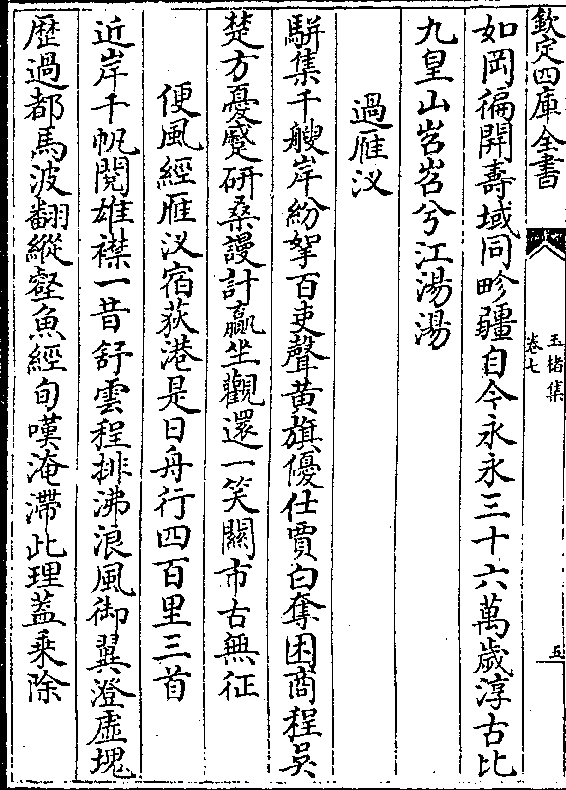 欽定四庫全書
玉楮集
卷七
五
如岡徧開壽域同畛疆自今永永三十六萬歲淳古比
九皇山岧岧兮江湯湯
過雁汊
駢集千艘岸紛拏百吏聲黄旗優仕賈白奪困商程吴
楚方憂蹙研桑謾計贏坐觀還一笑關市古無征
便風經雁汊宿荻港是日舟行四百里三首
近岸千帆閱雄襟一昔舒雲程排沸浪風御翼澄虛塊
歴過都馬波翻縱壑魚經旬嘆淹滯此理蓋乗除